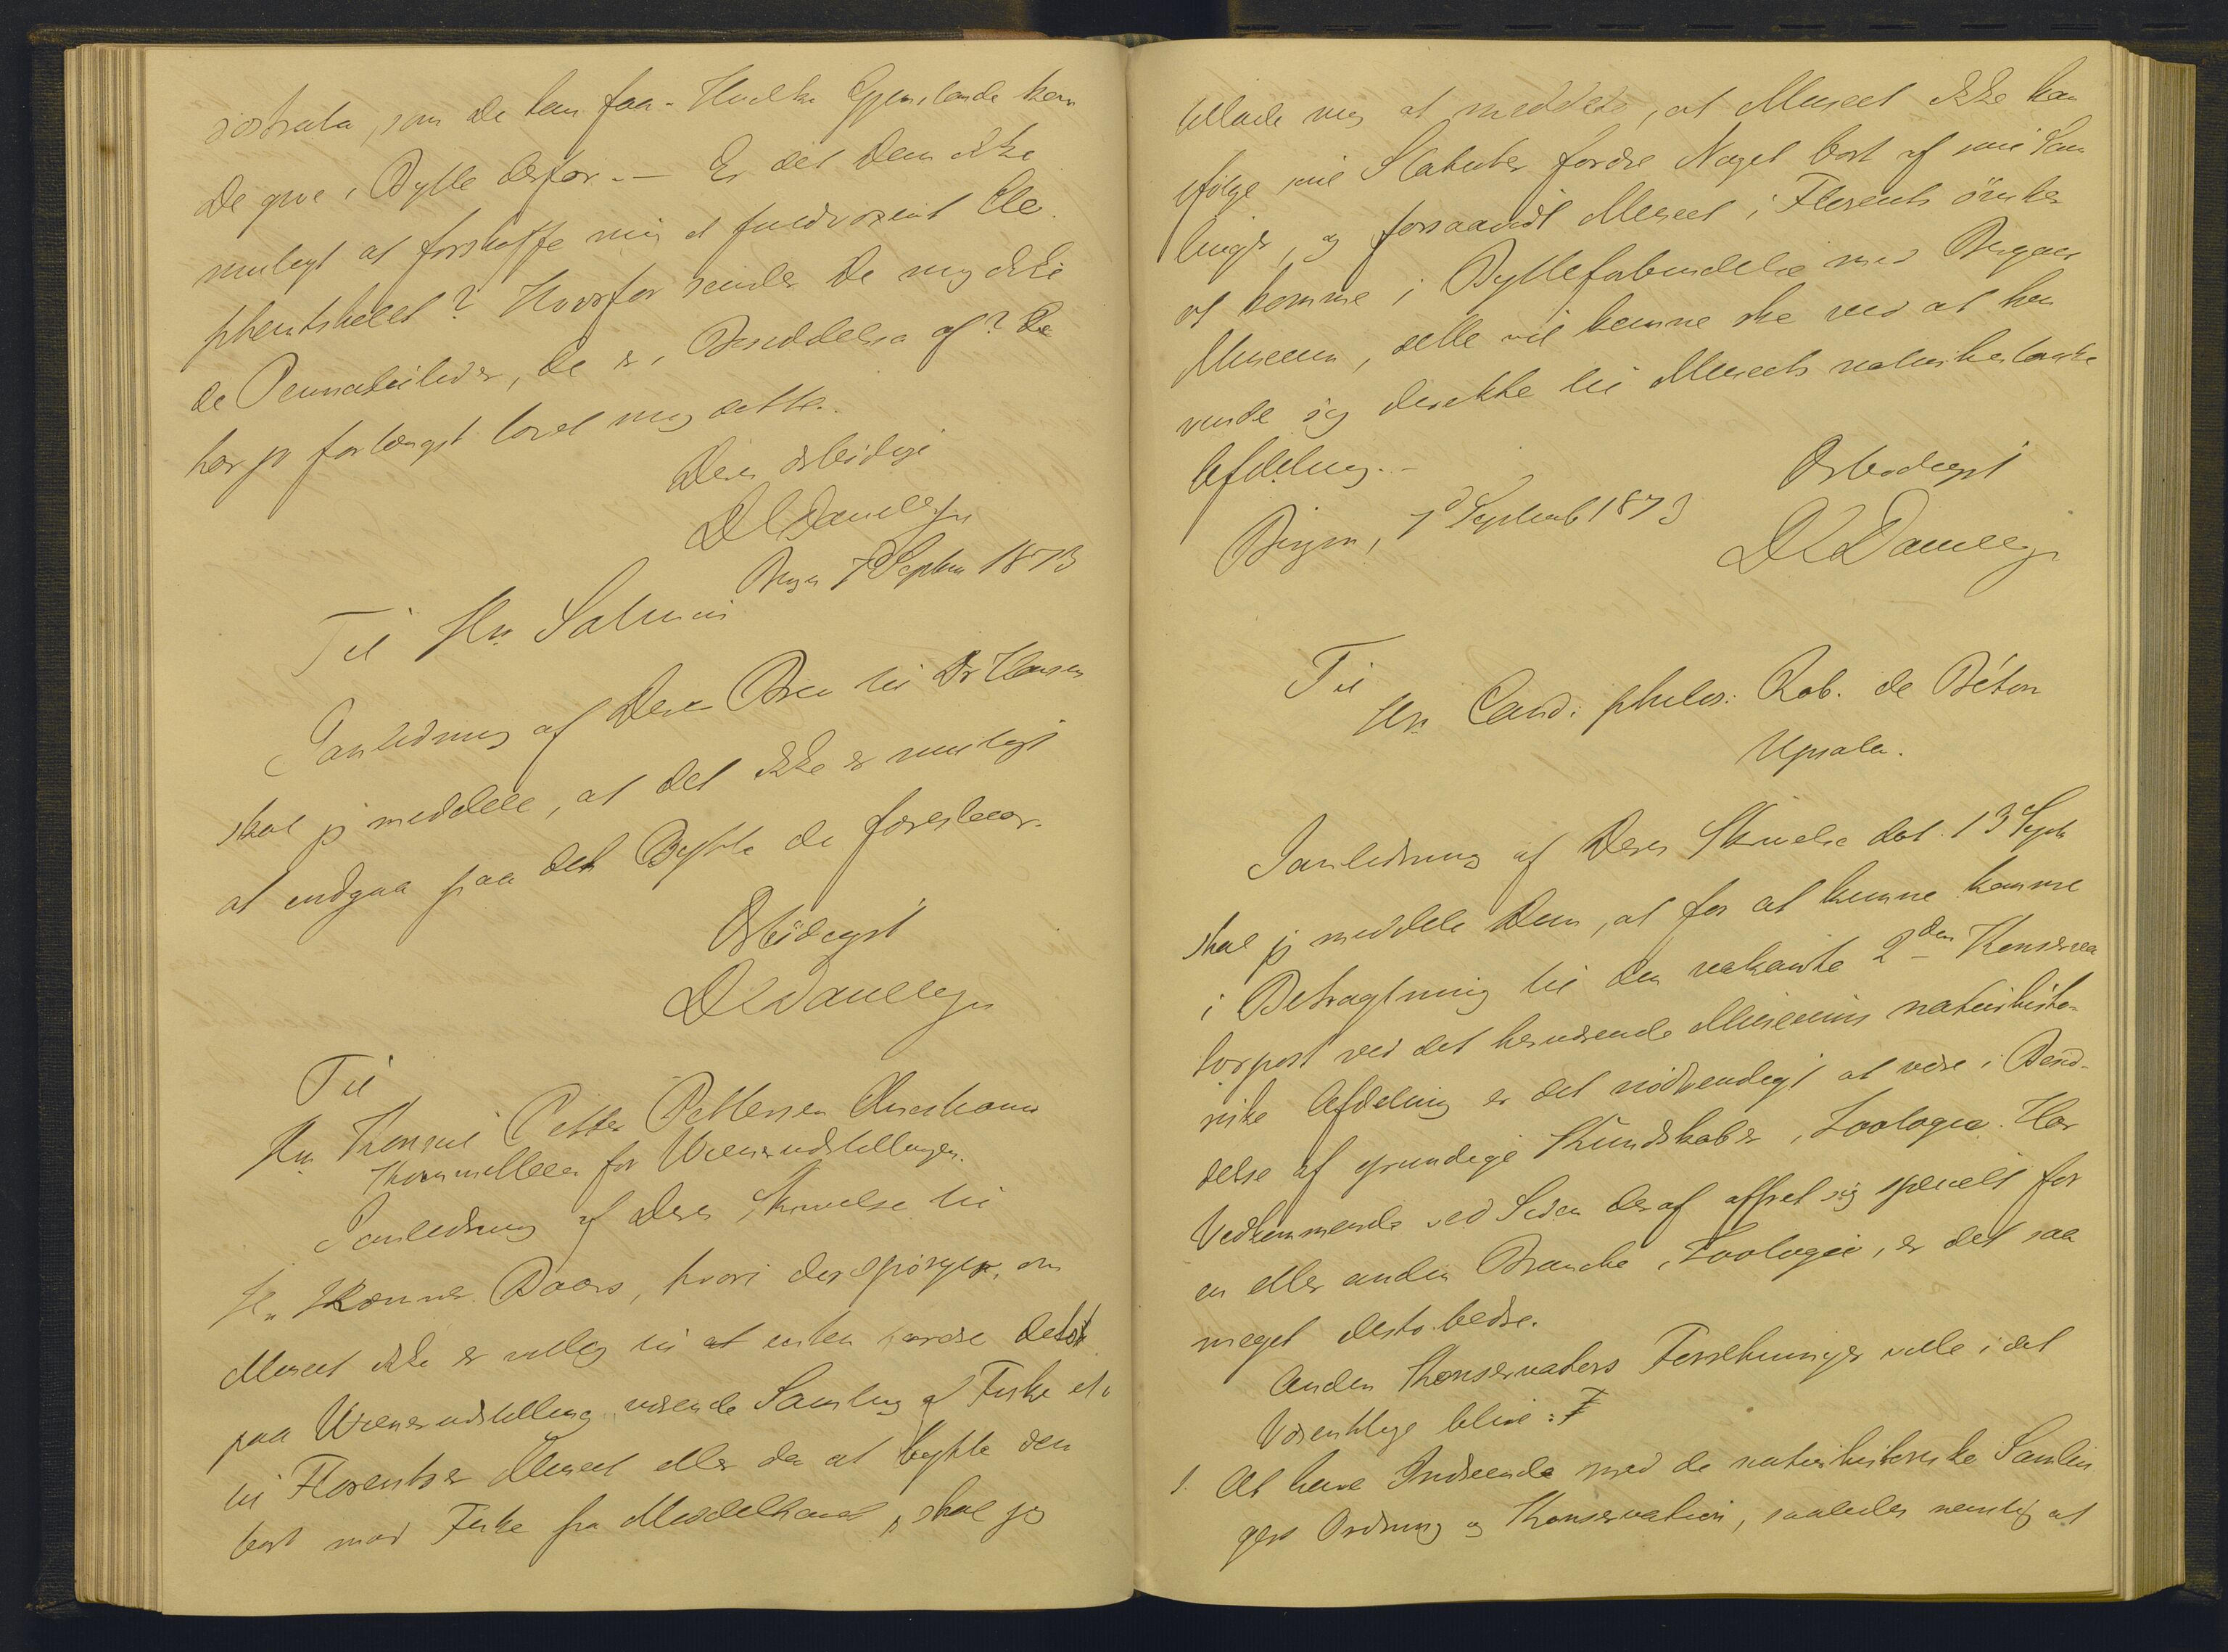 rostrata, som De kan faa. Hvilke Gjenstande kan
De give i Bytte derfor. — Er det Dem ikke
muligt at forskaffe mig et fuldvoxent Ele-
phantskelet? Hvorfor sender De mig ikke
de Pennatulider, De er i Besiddelse af? De
har jo forlængst lovet mig dette.
Deres ærbødige
DC Danielssen
Bergen 7 Septbr 1873
Til Hr. Salmin
I anledning af Deres Brev til Dr Hansen
skal jeg meddele, at det ikke er muligt
at indgaa paa det Bytte de foreslaar.
Ærbødigst
DC Danielssen
Til
Hr. Konsul Petter Pettersen Christiania
Kommitteen for Wienerudstillingen.
I anledning af Deres Skrivelse til
Hr. Kræmmer Daars, hvori der spørges, om
Museet ikke er villig til at enten forære det
paa Wienerudstilling værende Samling af Fiske etc
til Florentser Museet eller da at bytte den
bort mod Fiske fra Middelhavet, skal jeg
tillade mig at meddele, at Museet ikke kan
ifølge sine Statuter forære Noget bort af sine Sam
linger, og forsaavidt Museet i Florents önsker
at komme i Bytteforbindelse med Bergens
Museum, dette vil kunne ske ved at hen
vende sig direkte til Museets naturhistoriske
Afdeling. —
Ærbødigst
Bergen, 7d Septemb 1873
DC Danielssen
Til
Hr. Cand. philos. Rob. de Béton
Upsala.
I anledning af Deres Skrivelse dat. 13 Septb
skal jeg meddele Dem, at for at kunne komme
i Betragtning til den vakante 2den Konserva
torpost ved det herværende Museums naturhisto-
riske Afdeling er det nödvendigt at være i Besid-
delse af grundige Kundskaber i Zoologie. Har
Vedkommende ved Siden deraf offret sig specielt for
en eller anden Branche i Zoologie, er det saa
meget desto bedre.
Anden Konservators Forretninger ville i det
Væsentlige blive:
1. At have Indseende med de naturhistoriske Samlin
gers Ordning og Konservation, saaledes nemlig at